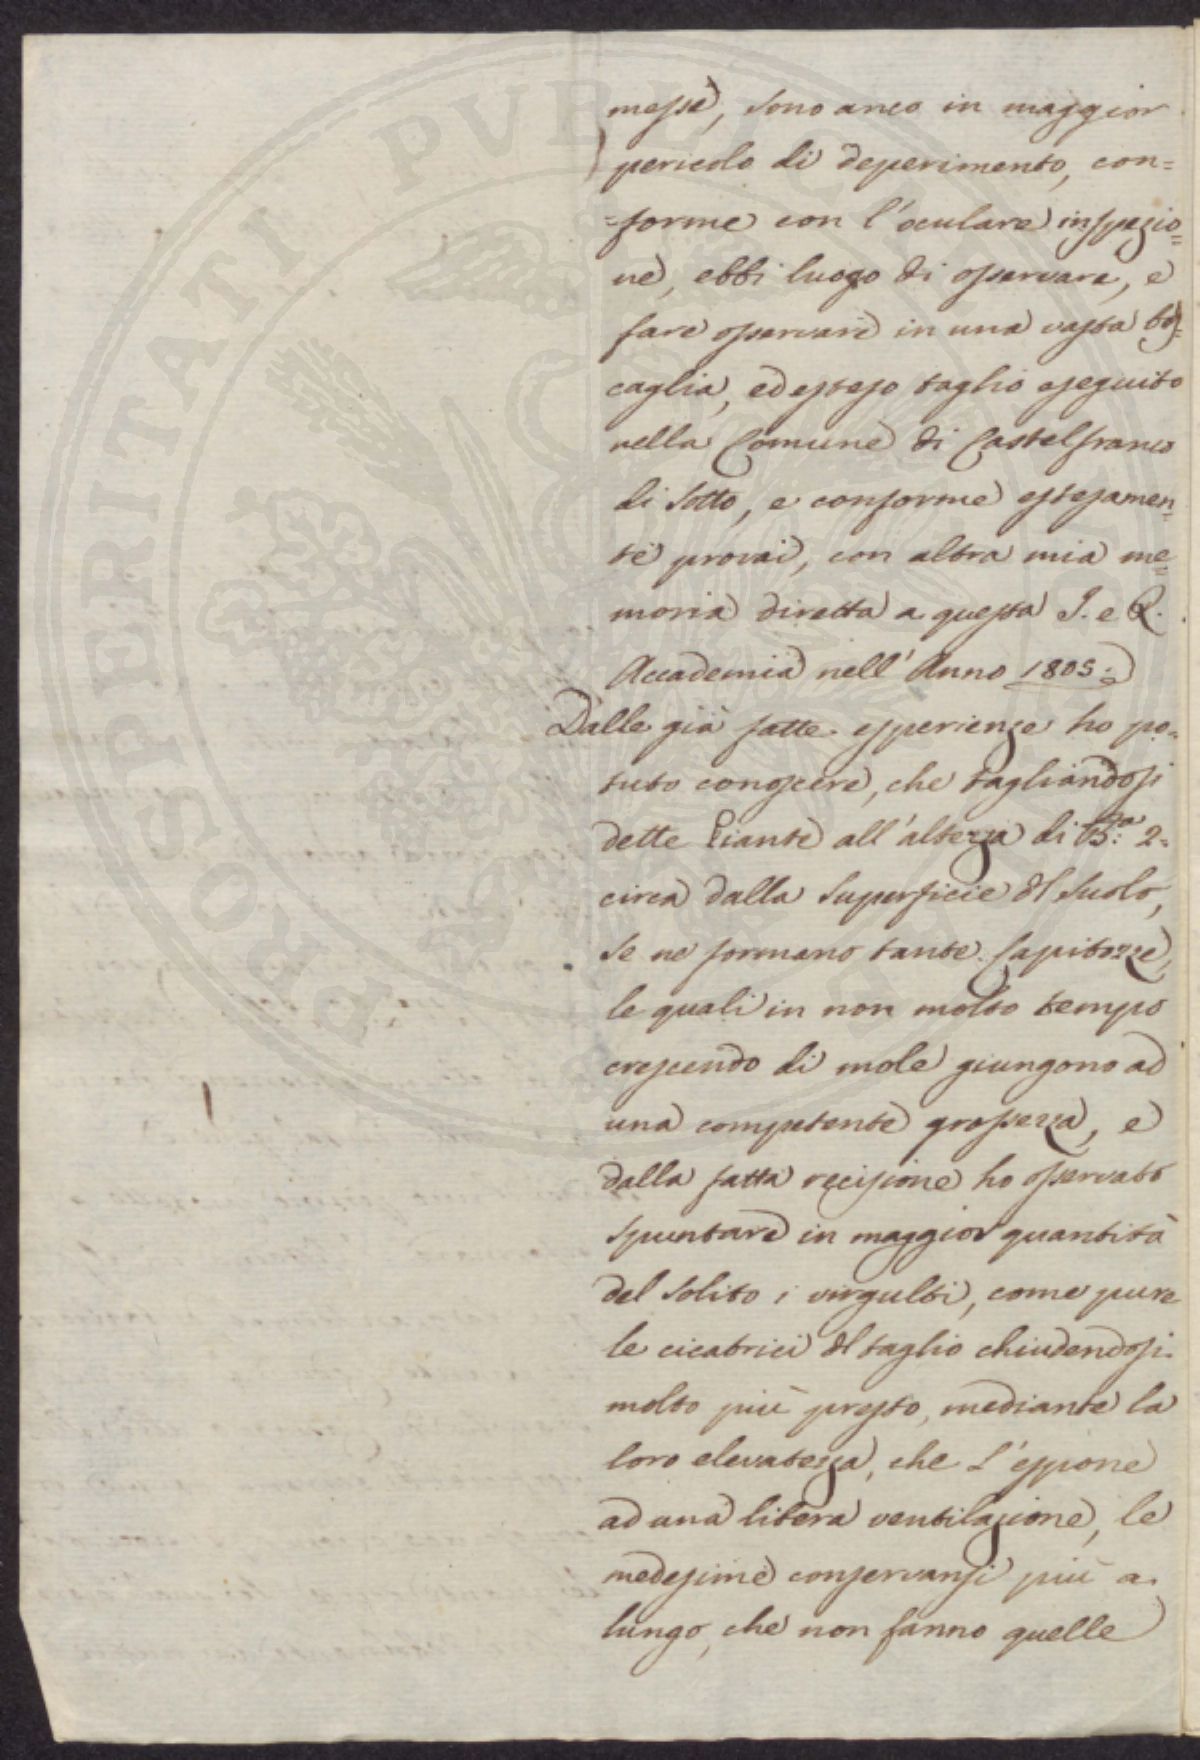 messe, sono anco in maggior
pericolo di deperimento, con=
=forme con l'oculare inspezio=
ne, ebbi luogo di osservare, e
fare osservare in una vasta bos=
caglia, ed esteso taglio eseguito
nella Comune di Castelfranco
di Sotto, e conforme estesamen=
te provai, con altra mia me=
moria diretta a questa I. e R.
Accademia nell'Anno 1805:
Dalle già fatte esperienze ho po=
tuto conoscere, che tagliandosi
dette Piante all'altezza di Ba: 2=
circa dalla Superficie del Suolo,
se ne formano tante Capitozze,
le quali in non molto tempo
crescendo di mole giungono ad
una competente grossezza, e
dalla fatta recisione ho osservato
spuntare in maggior quantità
del solito i virgulti, come pure
le cicatrici del taglio chiudendosi
molto più presto, mediante la
loro elevatezza, che l'espone
ad una libera ventilazione, le
medesime conservansi più a
lungo, che non fanno quelle
PROSPERITATI PUBLICAE